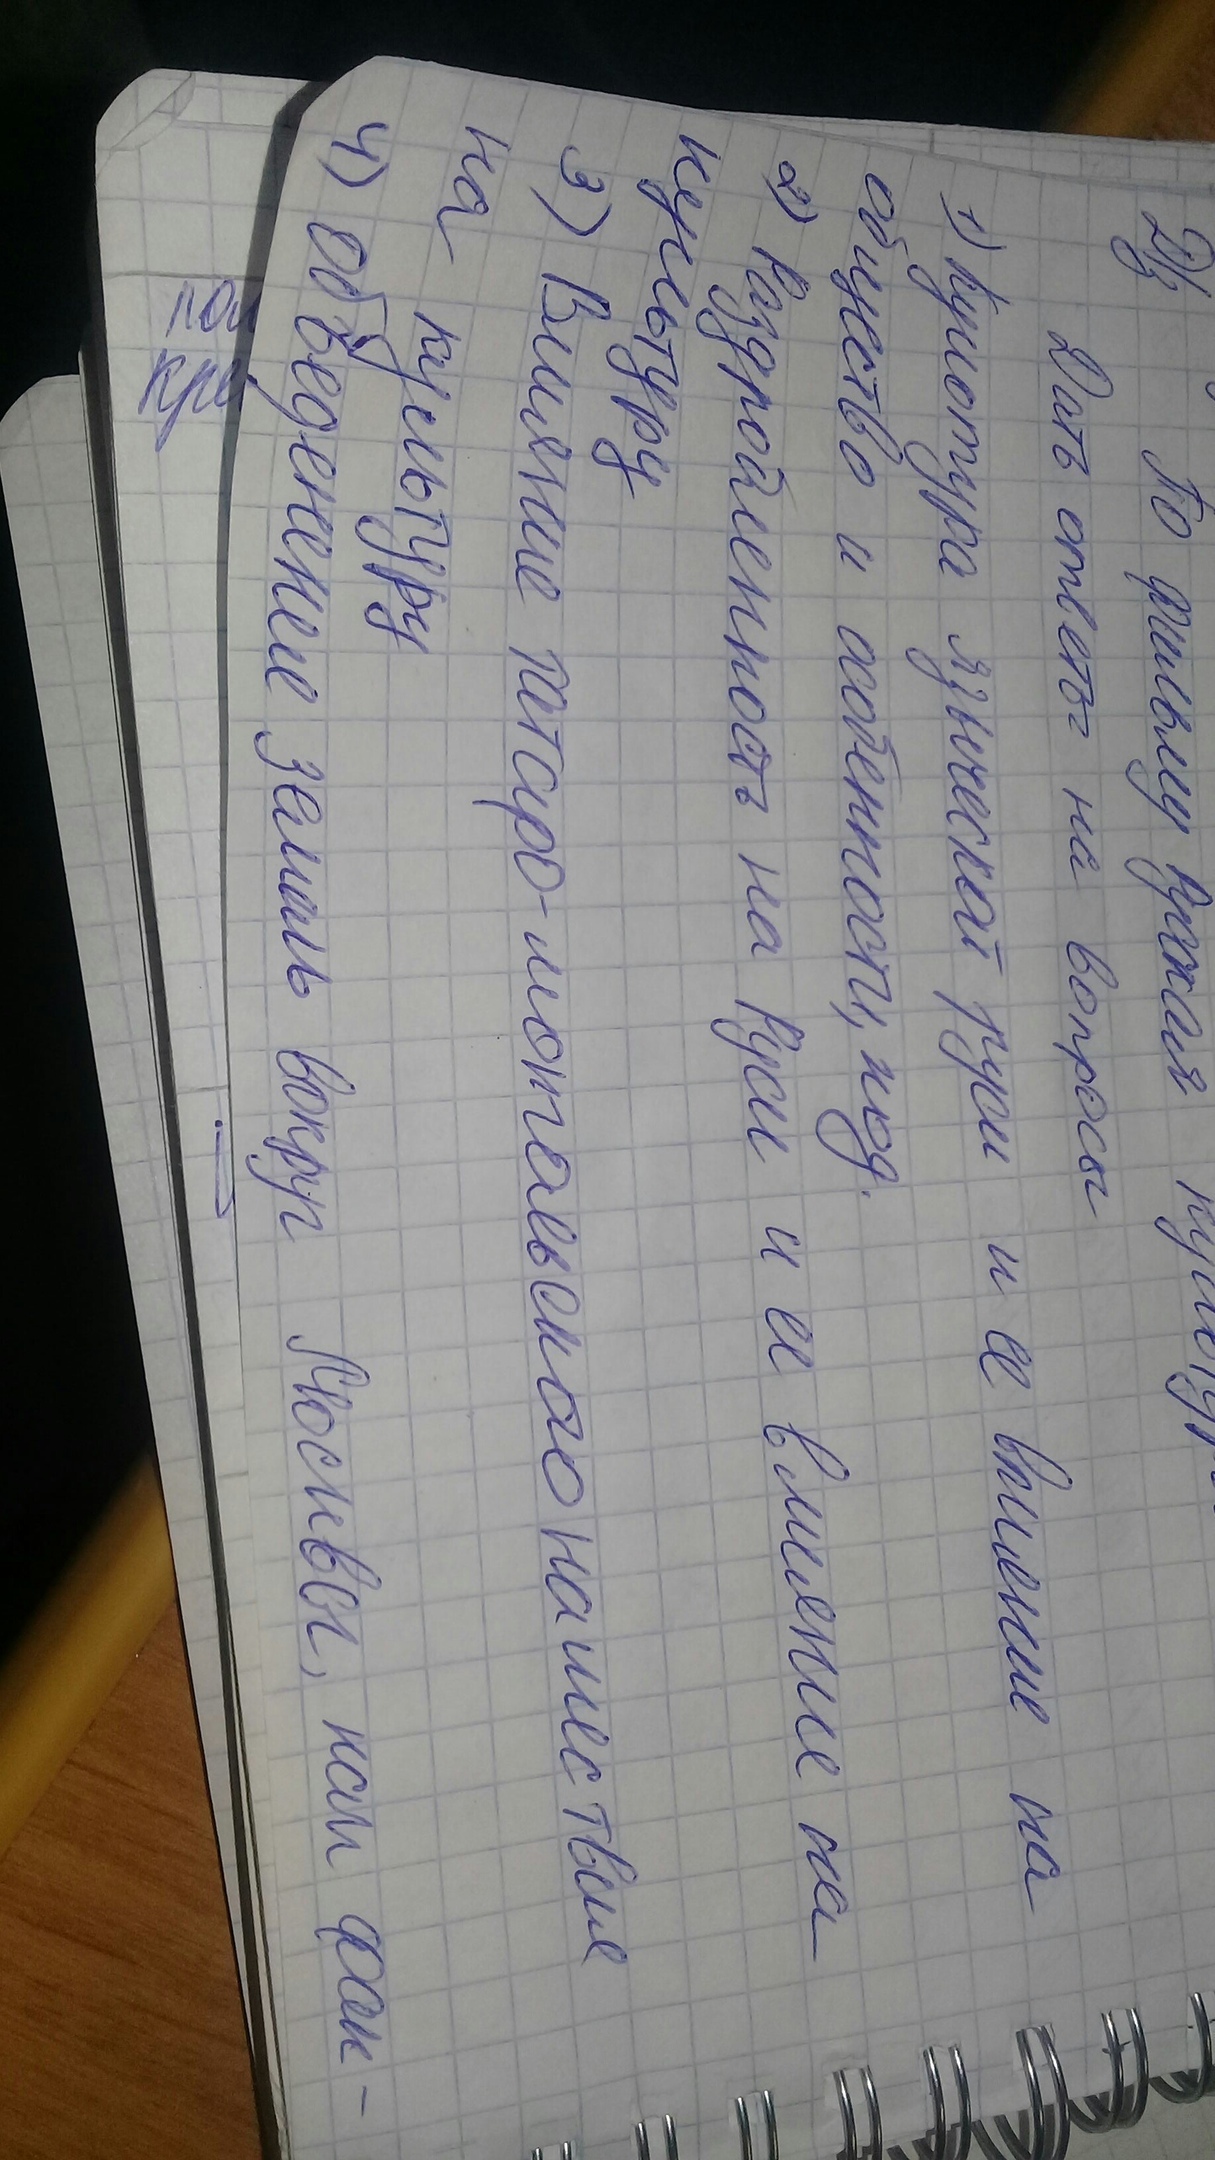 Дз По фильму Русская культура
Дать ответы на вопросы
1) Культура языческой руси и ее влиение на
общество и особенности, люд.
2) Раздробленность на Руси и ее влияние на
культуру
3) Влияние татаро-монгальского нашествие
на культуру
4) объеденение земель вокруг Москвы, как фак-